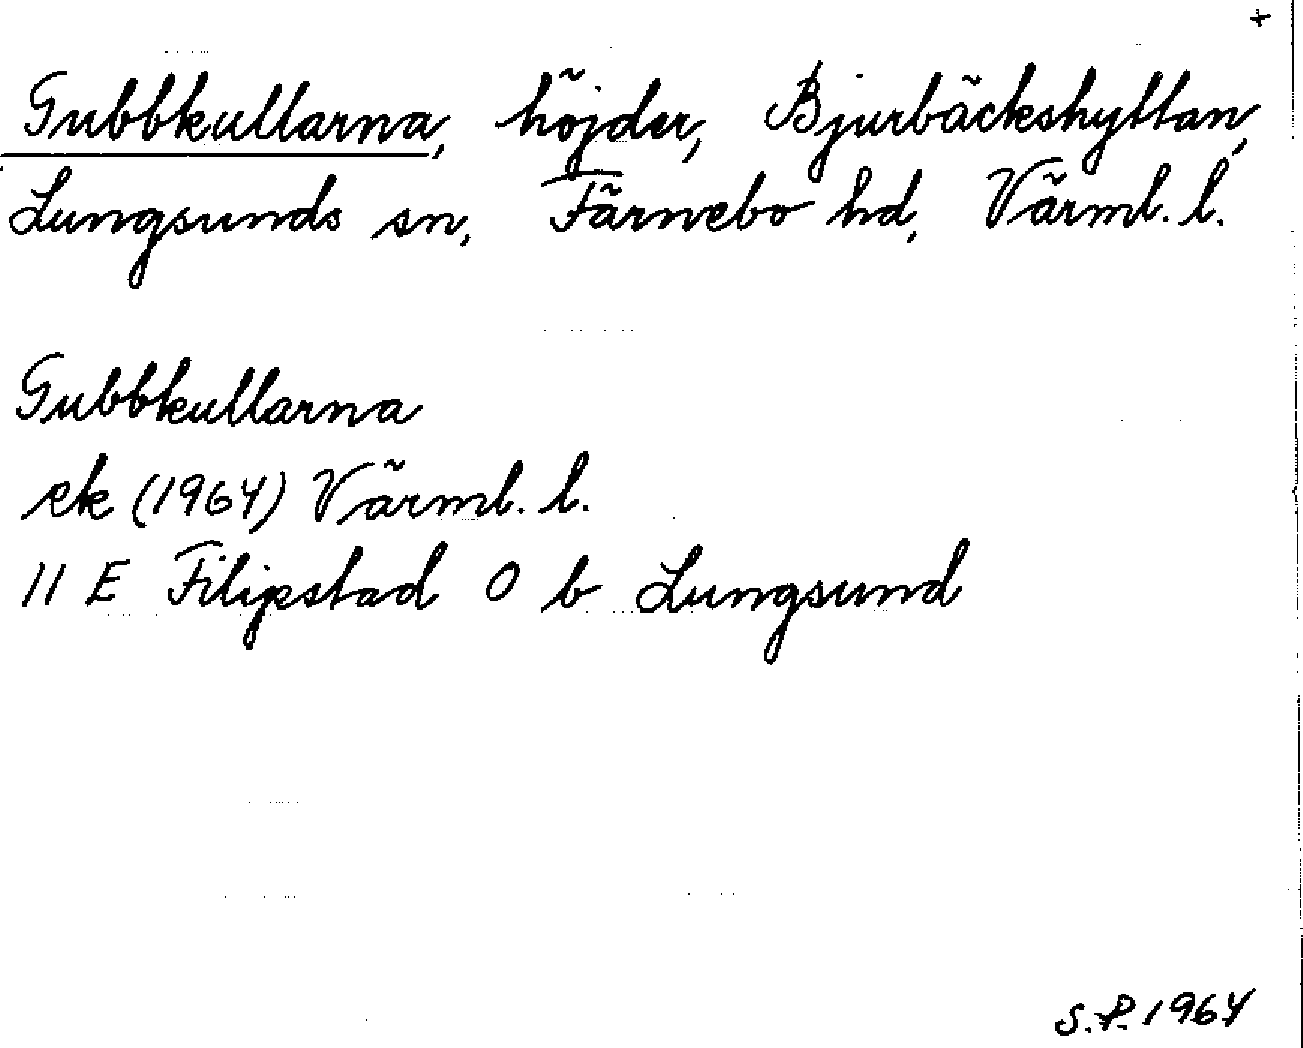 +
Gubbkullarna, höjder, Bjurbäckshyttan,
Lungsunds sn, Färnebo hd, Värml. l.
Gubbkullarna
ek (1964) Värml. l.
11 E Filipstad O b Lungsund
S.P. 1964